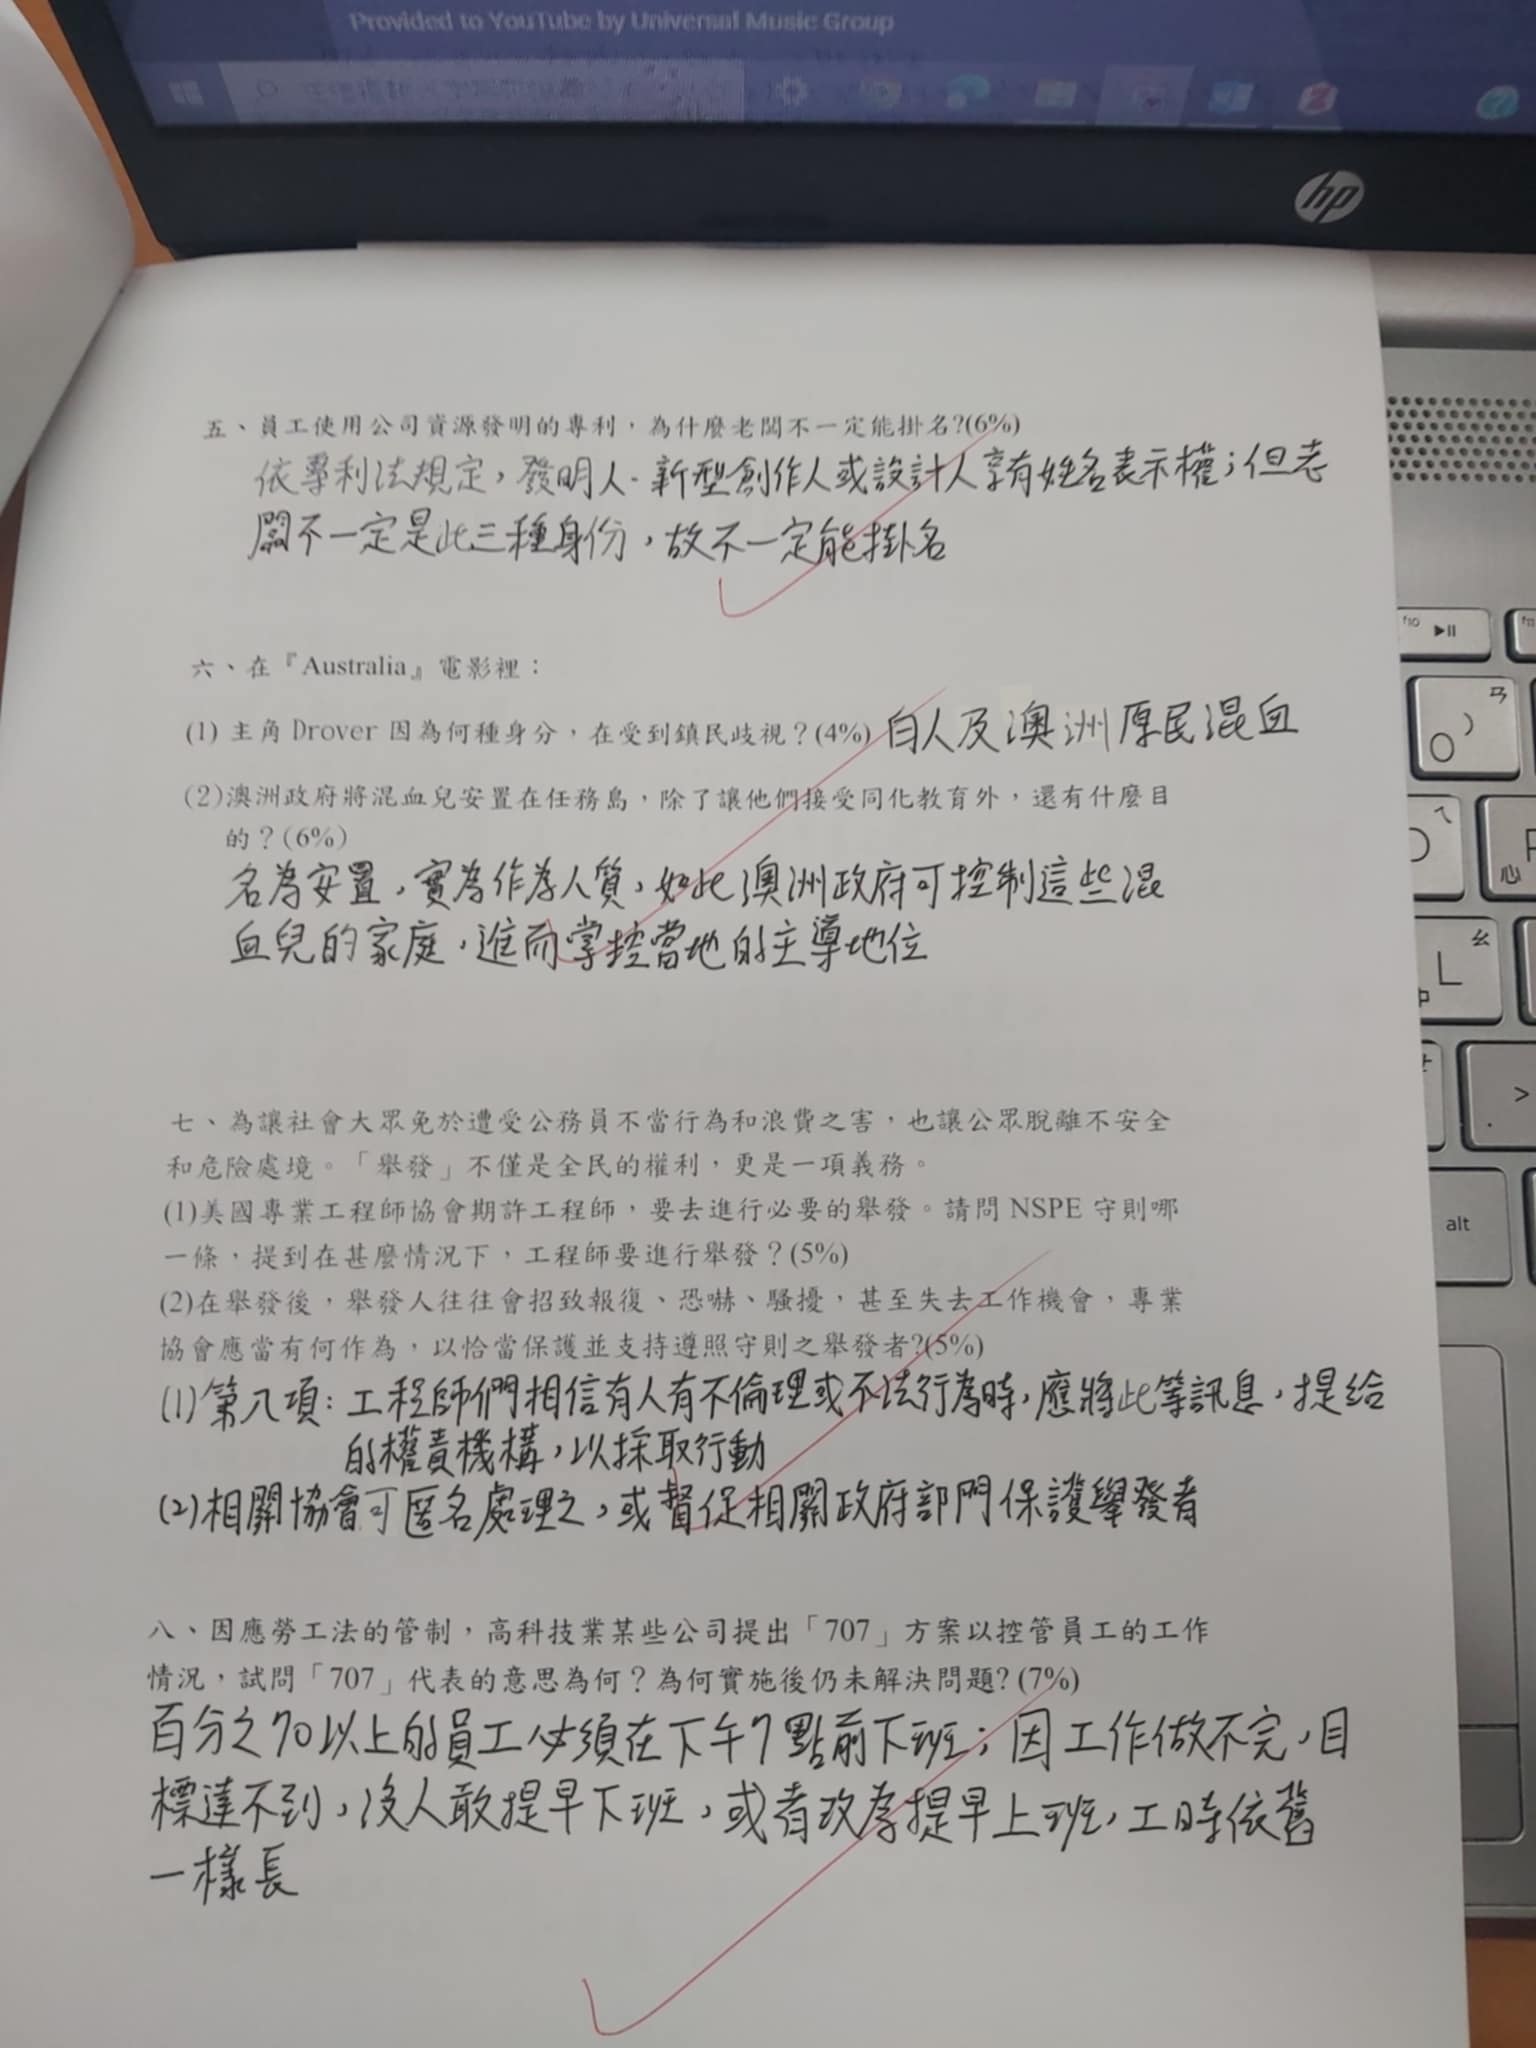 Provided to YouTube by Universal Music Group
hp
五、員工使用公司資源發明的專利，為什麼老闆不一定能掛名?(6%)
依專利法規定，發明人、新型創作人或設計人享有姓名表示權；但老
闆不一定是此三種身份，故不一定能掛名
六、在『Australia』電影裡：
(1) 主角 Drover 因為何種身分，在受到鎮民歧視？(4%) 白人及澳洲原民混血
(2)澳洲政府將混血兒安置在任務島，除了讓他們接受同化教育外，還有什麼目
的？(6%)
名為安置，實為作為人質，如此澳洲政府可控制這些混
血兒的家庭，進而掌控當地的主導地位
七、為讓社會大眾免於遭受公務員不當行為和浪費之害，也讓公眾脫離不安全
和危險處境。「舉發」不僅是全民的權利，更是一項義務。
(1)美國專業工程師協會期許工程師，要去進行必要的舉發。請問 NSPE 守則哪
一條，提到在甚麼情況下，工程師要進行舉發？(5%)
(2)在舉發後，舉發人往往會招致報復、恐嚇、騷擾，甚至失去工作機會，專業
協會應當有何作為，以恰當保護並支持遵照守則之舉發者?(5%)
(1)第八項：工程師們相信有人有不倫理或不法行為時，應將此等訊息，提給
的權責機構，以採取行動
(2)相關協會可匿名處理之，或督促相關政府部門保護舉發者
八、因應勞工法的管制，高科技業某些公司提出「707」方案以控管員工的工作
情況，試問「707」代表的意思為何？為何實施後仍未解決問題?(7%)
百分之70以上的員工必須在下午7點前下班；因工作做不完，目
標達不到，沒人敢提早下班，或者改為提早上班，工時依舊
一樣長
f10
ㄢ
ㄟ
ㄠ
L
alt
心